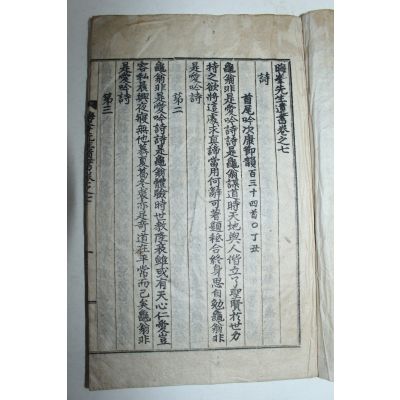 晦峯先生遺書卷之七
詩
首尾吟次康節韻百三十四首○丁丑
龜翁非是愛吟詩龜翁謀道時天地與人偕立了聖賢於世力
特之欲將這處求真諦當用何辭可著題祗合終身思自勉龜翁非
是愛吟詩
第二
龜翁非是愛吟詩詩是龜翁體驗時世教陵夷雖或有天心仁愛豈
容私晨興夜寢無他慕夏葛冬裘亦是奇道在平常而已矣龜翁非
是愛吟詩
第三